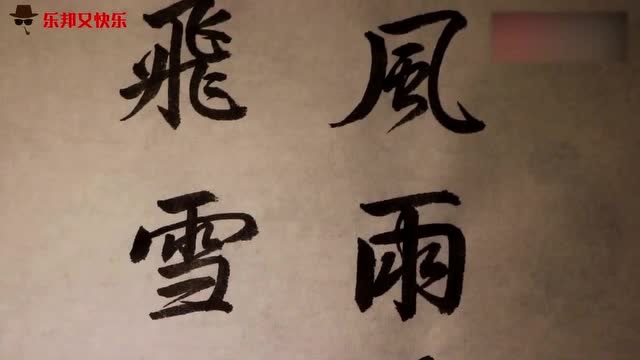 乐邦又快乐
風雨
飛雪